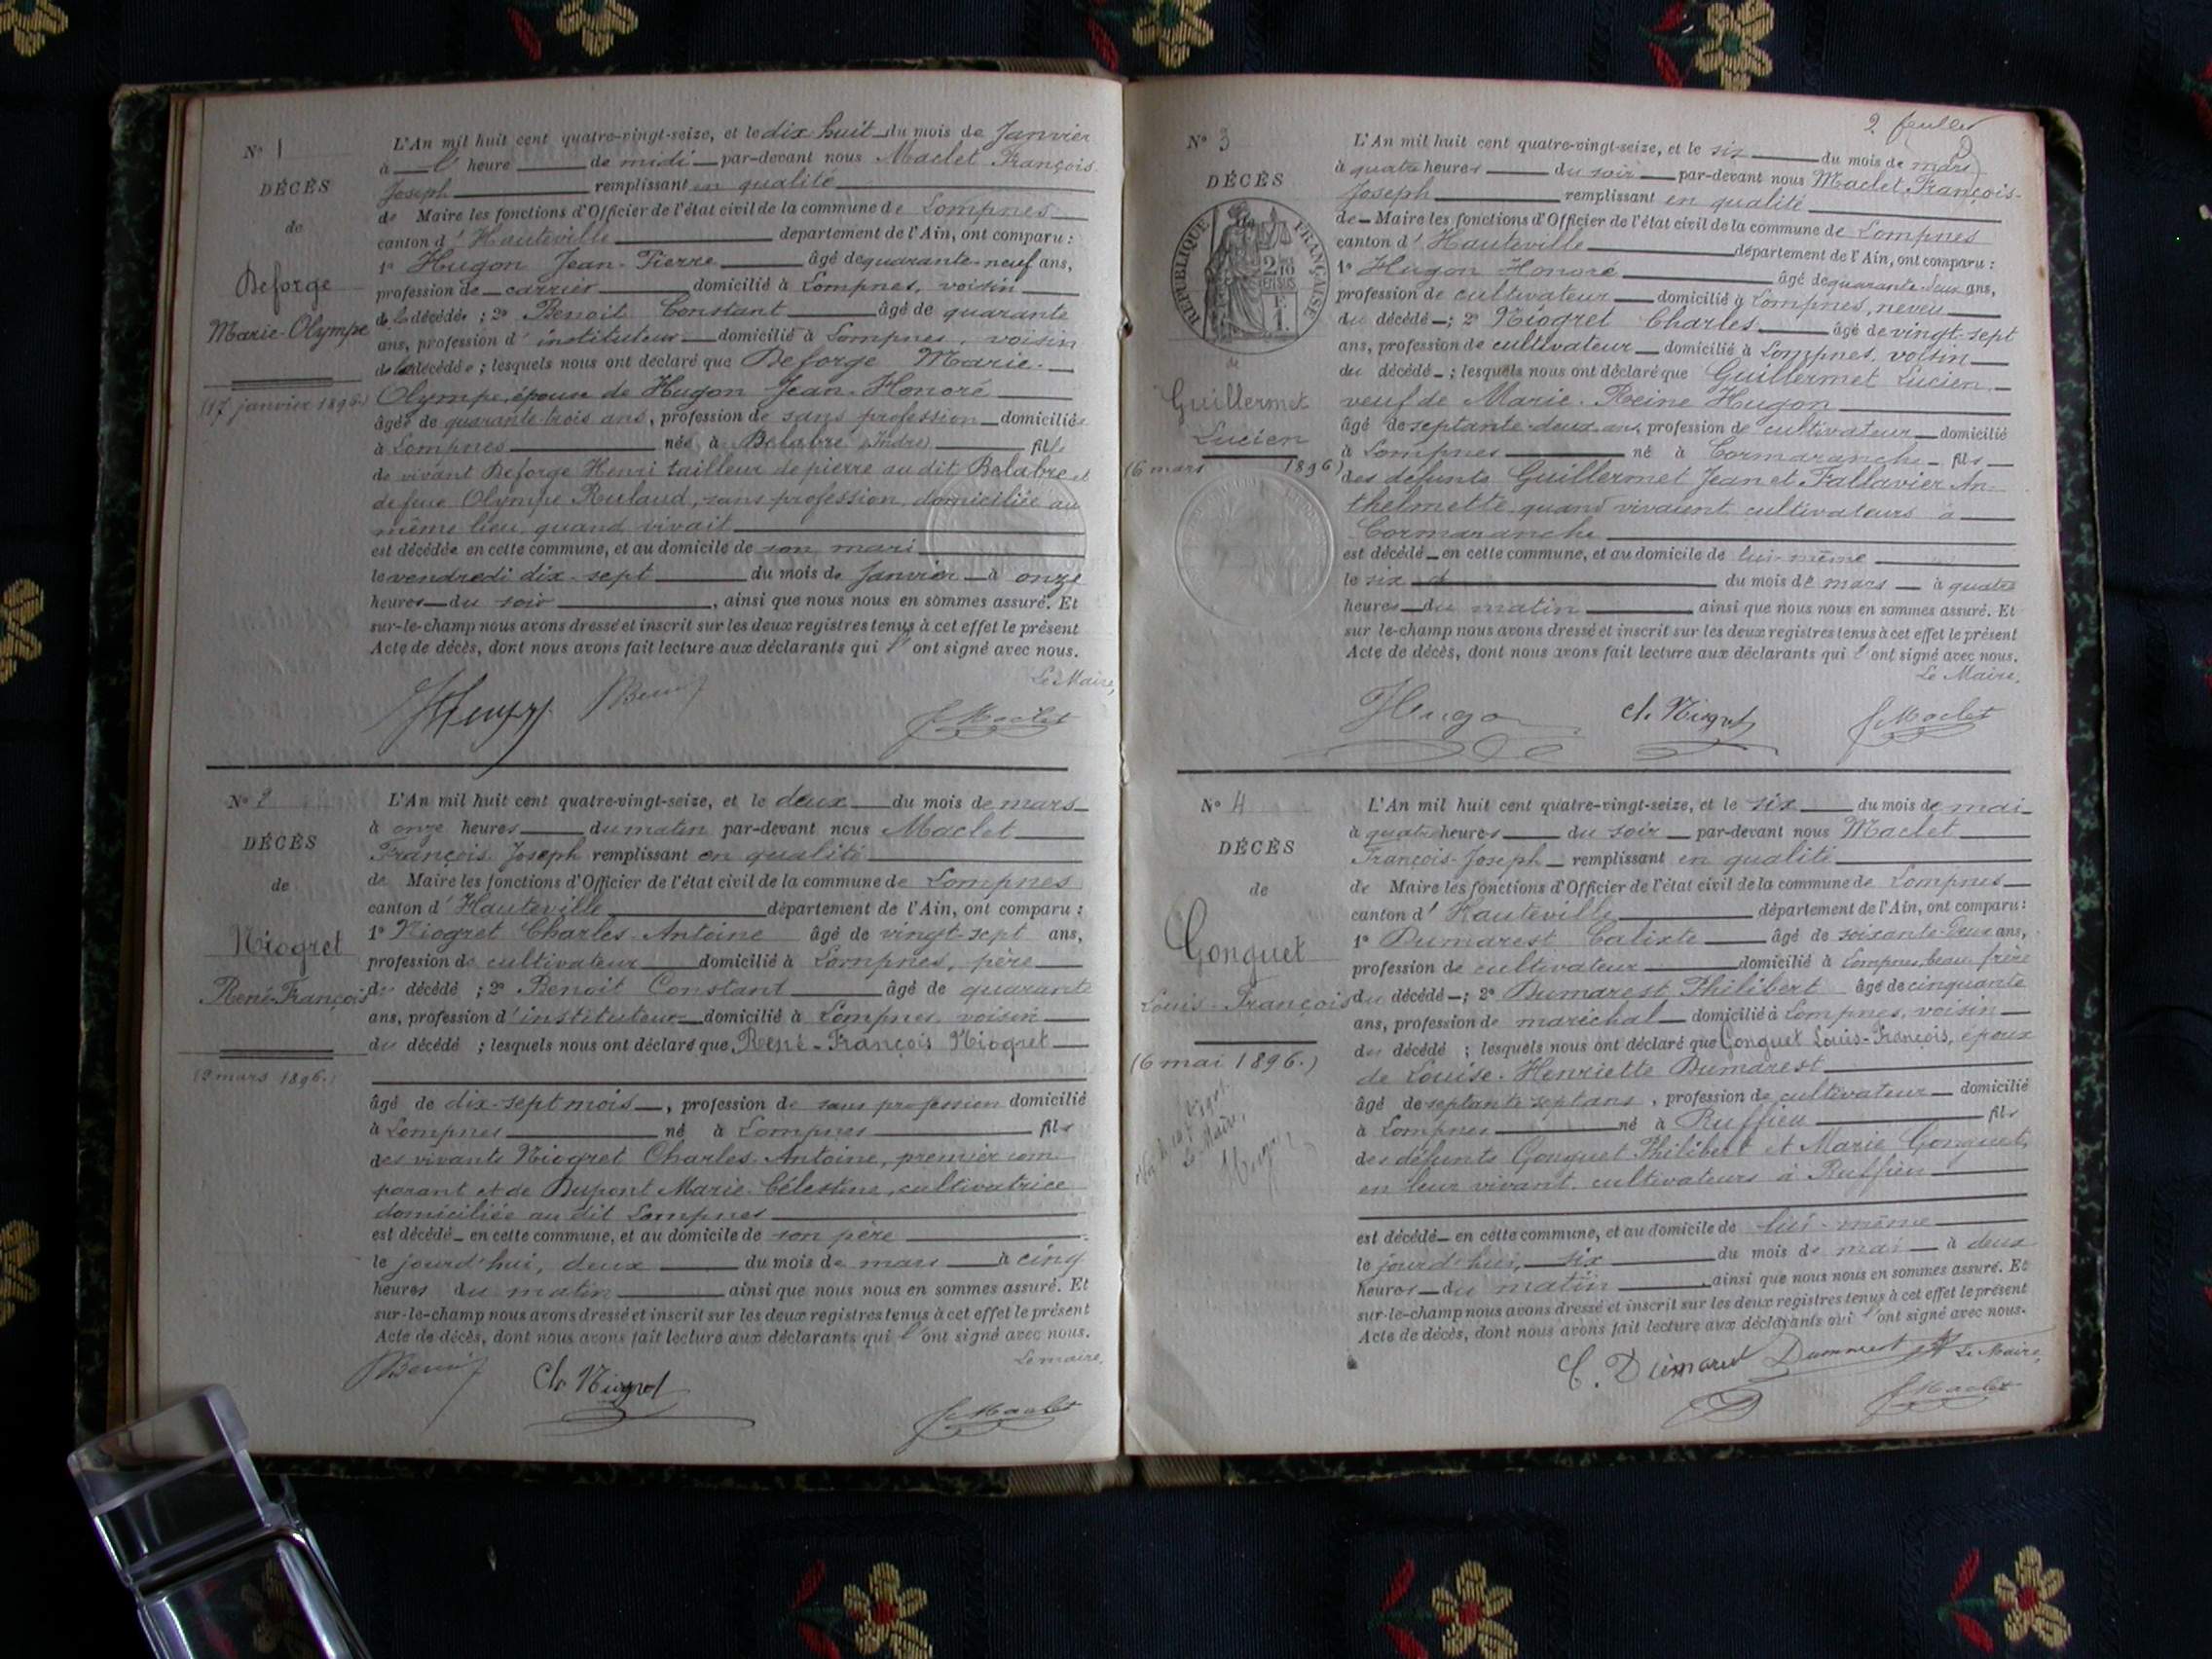 N° 1
DÉCÈS
de
Deforge
Marie-Olympe
(17 janvier 1896)
L'An mil huit cent quatre-vingt-seize, et le dix huit du mois de Janvier
à l' heure de midi par-devant nous Maclet François
Joseph remplissant en qualité
de Maire les fonctions d'Officier de l'état civil de la commune de Lompnes
canton d'Hauteville département de l'Ain, ont comparu :
1° Hugon Jean-Pierre âgé de quarante-neuf ans,
profession de carrier domicilié à Lompnes, voisin
de la décédée ; 2° Benoit Constant âgé de quarante
ans, profession d'instituteur domicilié à Lompnes, voisin
de la décédée ; lesquels nous ont déclaré que Deforge Marie-
Olympe, épouse de Hugon Jean-Honoré
âgée de quarante-trois ans, profession de sans profession domiciliée
à Lompnes née à Bélabre (Indre) fille
de vivant Deforge Henri tailleur de pierre au dit Belabre et
de feue Olympe Rulaud, sans profession, domiciliée au
même lieu quand vivait
est décédée en cette commune, et au domicile de son mari
le vendredi dix-sept du mois de Janvier à onze
heures du soir, ainsi que nous nous en sommes assuré. Et
sur-le-champ nous avons dressé et inscrit sur les deux registres tenus à cet effet le présent
Acte de décès, dont nous avons fait lecture aux déclarants qui l'ont signé avec nous.
Le Maire,
Benoit
Maclet
N° 2
DÉCÈS
de
Niogret
René-François
(2 mars 1896.)
L'An mil huit cent quatre-vingt-seize, et le deux du mois de mars
à onze heures du matin par-devant nous Maclet
François Joseph remplissant en qualité
de Maire les fonctions d'Officier de l'état civil de la commune de Lompnes
canton d'Hauteville département de l'Ain, ont comparu :
1° Niogret Charles Antoine âgé de vingt-sept ans,
profession de cultivateur domicilié à Lompnes, père
du décédé ; 2° Benoit Constant âgé de quarante
ans, profession d'instituteur domicilié à Lompnes, voisin
du décédé ; lesquels nous ont déclaré que René-François Niogret
âgé de dix-sept mois, profession de sans profession domicilié
à Lompnes né à Lompnes fils
des vivants Niogret Charles Antoine, premier com-
parant et de Dupont Marie Célestine, cultivatrice
domiciliée au dit Lompnes
est décédé en cette commune, et au domicile de son père
le jourd'hui, deux du mois de mars à cinq
heures du matin ainsi que nous nous en sommes assuré. Et
sur-le-champ nous avons dressé et inscrit sur les deux registres tenus à cet effet le présent
Acte de décès, dont nous avons fait lecture aux déclarants qui l'ont signé avec nous.
Le maire,
Benoit
Ch Niogret
Maclet
2 feuillet
N° 3
DÉCÈS
RÉPUBLIQUE FRANÇAISE
2/10 EN SUS
1 F.
de
Guillermet
Lucien
(6 mars 1896)
L'An mil huit cent quatre-vingt-seize, et le six du mois de mars
à quatre heures du soir par-devant nous Maclet François-
Joseph remplissant en qualité
de Maire les fonctions d'Officier de l'état civil de la commune de Lompnes
canton d'Hauteville département de l'Ain, ont comparu :
1° Hugon Honoré âgé de quarante-deux ans,
profession de cultivateur domicilié à Lompnes, neveu
du décédé ; 2° Niogret Charles âgé de vingt-sept
ans, profession de cultivateur domicilié à Lompnes, voisin
du décédé ; lesquels nous ont déclaré que Guillermet Lucien
veuf de Marie-Reine Hugon
âgé de septante-deux ans, profession de cultivateur domicilié
à Lompnes né à Cormaranche fils
des défunts Guillermet Jean et Fallavier An-
thelmette quand vivaient cultivateurs à
Cormaranche
est décédé en cette commune, et au domicile de lui-même
le six du mois de mars à quatre
heures du matin ainsi que nous nous en sommes assuré. Et
sur-le-champ nous avons dressé et inscrit sur les deux registres tenus à cet effet le présent
Acte de décès, dont nous avons fait lecture aux déclarants qui l'ont signé avec nous.
Le Maire,
Hugon
Ch. Niogret
Maclet
N° 4
DÉCÈS
de
Gonguet
Louis-François
(6 mai 1896.)
L'An mil huit cent quatre-vingt-seize, et le six du mois de mai
à quatre heures du soir par-devant nous Maclet
François-Joseph remplissant en qualité
de Maire les fonctions d'Officier de l'état civil de la commune de Lompnes
canton d'Hauteville département de l'Ain, ont comparu :
1° Dumarest Calixte âgé de soixante-deux ans,
profession de cultivateur domicilié à Lompnes, beau frère
du décédé ; 2° Dumarest Philibert âgé de cinquante
ans, profession de maréchal domicilié à Lompnes, voisin
du décédé ; lesquels nous ont déclaré que Gonguet Louis-François, époux
de Louise-Henriette Dumarest
âgé de septante sept ans, profession de cultivateur domicilié
à Lompnes né à Ruffieu fils
des défunts Gonguet Philibert et Marie Gonguet,
en leur vivant cultivateurs à Ruffieu
est décédé en cette commune, et au domicile de lui-même
le jourd'hui, six du mois de mai à deux
heures du matin, ainsi que nous nous en sommes assuré. Et
sur-le-champ nous avons dressé et inscrit sur les deux registres tenus à cet effet le présent
Acte de décès, dont nous avons fait lecture aux déclarants qui l'ont signé avec nous.
C. Dumarest Dumarest Le Maire,
Maclet